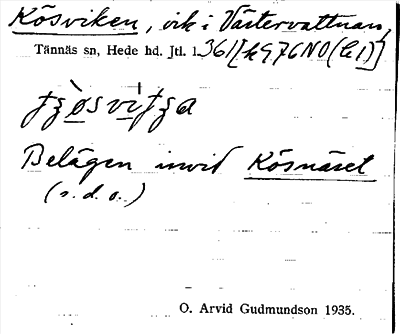 Kösviken, vik i Västervattnan,
Tännäs sn, Hede hd. Jtl. l. 361[k976NO(bl)]
Belägen invid Kösnäset
(s. d. o.)
O. Arvid Gudmundson 1935.